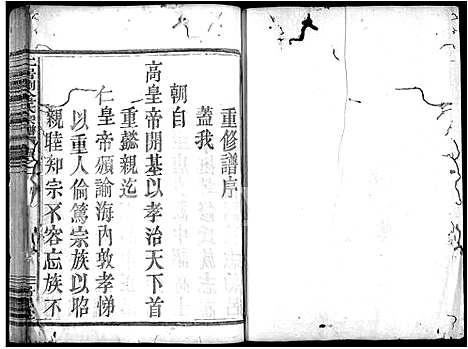 重修譜序
蓋我
朝自
高皇帝開基以孝治天下首
重懿親迄
仁皇帝頒諭海内敦孝悌
以重人倫篤宗族以昭
親睦知宗不容忘族不